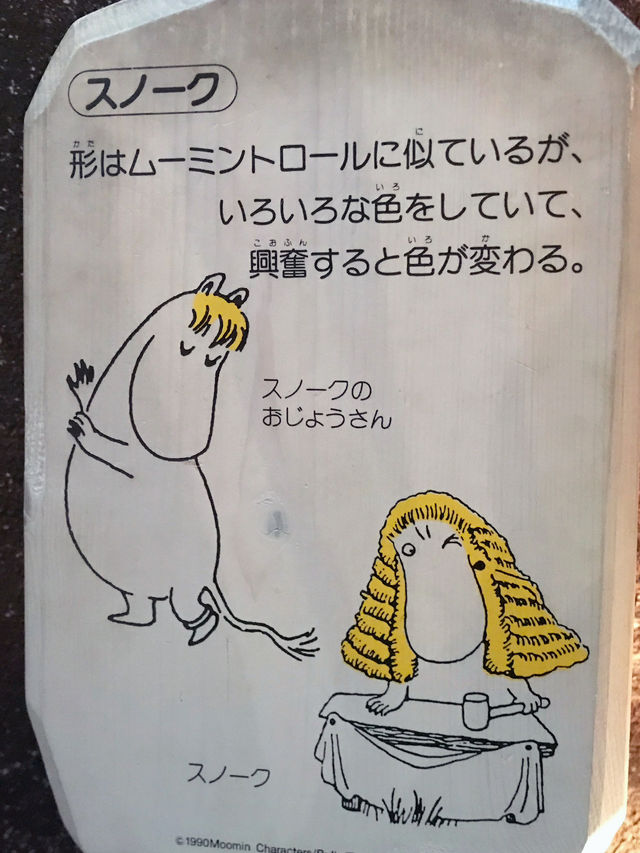 スノーク
形はムーミントロールに似ているが、
いろいろな色をしていて、
興奮すると色が変わる。
スノークの
おじょうさん
スノーク
©1990Moomin Characters/